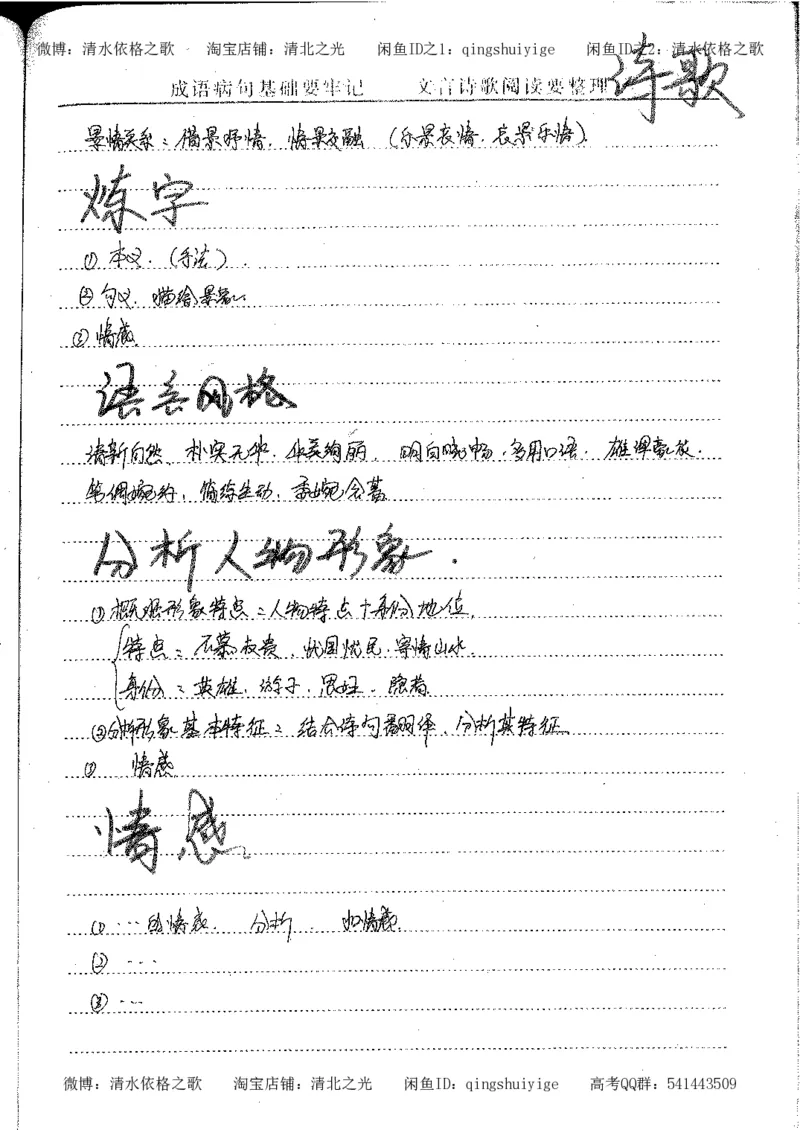 微博：清水依格之歌 淘宝店铺：清北之光 闲鱼ID之1：qingshuiyige 闲鱼ID之2：清水依格之歌
成语病句基础要牢记 文言诗歌阅读要整理
诗歌
景情关系：借景抒情，情景交融（乐景哀情，哀景乐情）
炼字
① 本义．（手法）．
② 句义．描绘景象．
③ 情感
语言风格
清新自然、朴实无华、华美绚丽、明白晓畅、多用口语、雄浑豪放．
婉约，简练生动，委婉含蓄
分析人物形象．
① 概括形象特点：人物特点+身份地位．
特点：不慕权贵，忧国忧民，寄情山水．
身份：英雄，游子，思妇，隐者
②分析形象基本特征：结合诗句翻译，分析其特征．
③ 情感
情感
① … 的情感． 分析
② …
③ …
微博：清水依格之歌 淘宝店铺：清北之光 闲鱼ID：qingshuiyige 高考QQ群：541443509